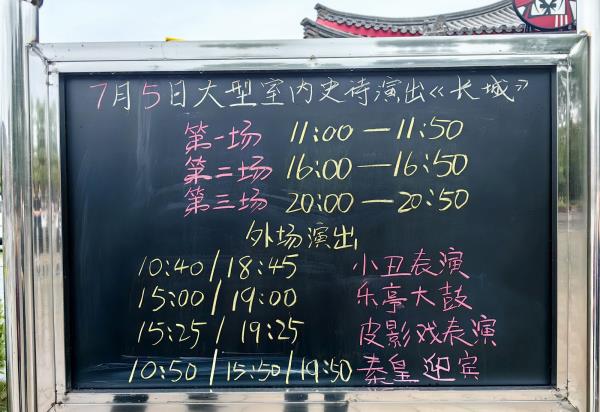 7月5日大型室内史诗演出《长城》
第一场 11:00—11:50
第二场 16:00—16:50
第三场 20:00—20:50
外场演出
10:40/18:45 小丑表演
15:00/19:00 乐亭大鼓
15:25/19:25 皮影戏表演
10:50/15:50/19:50 秦皇迎宾